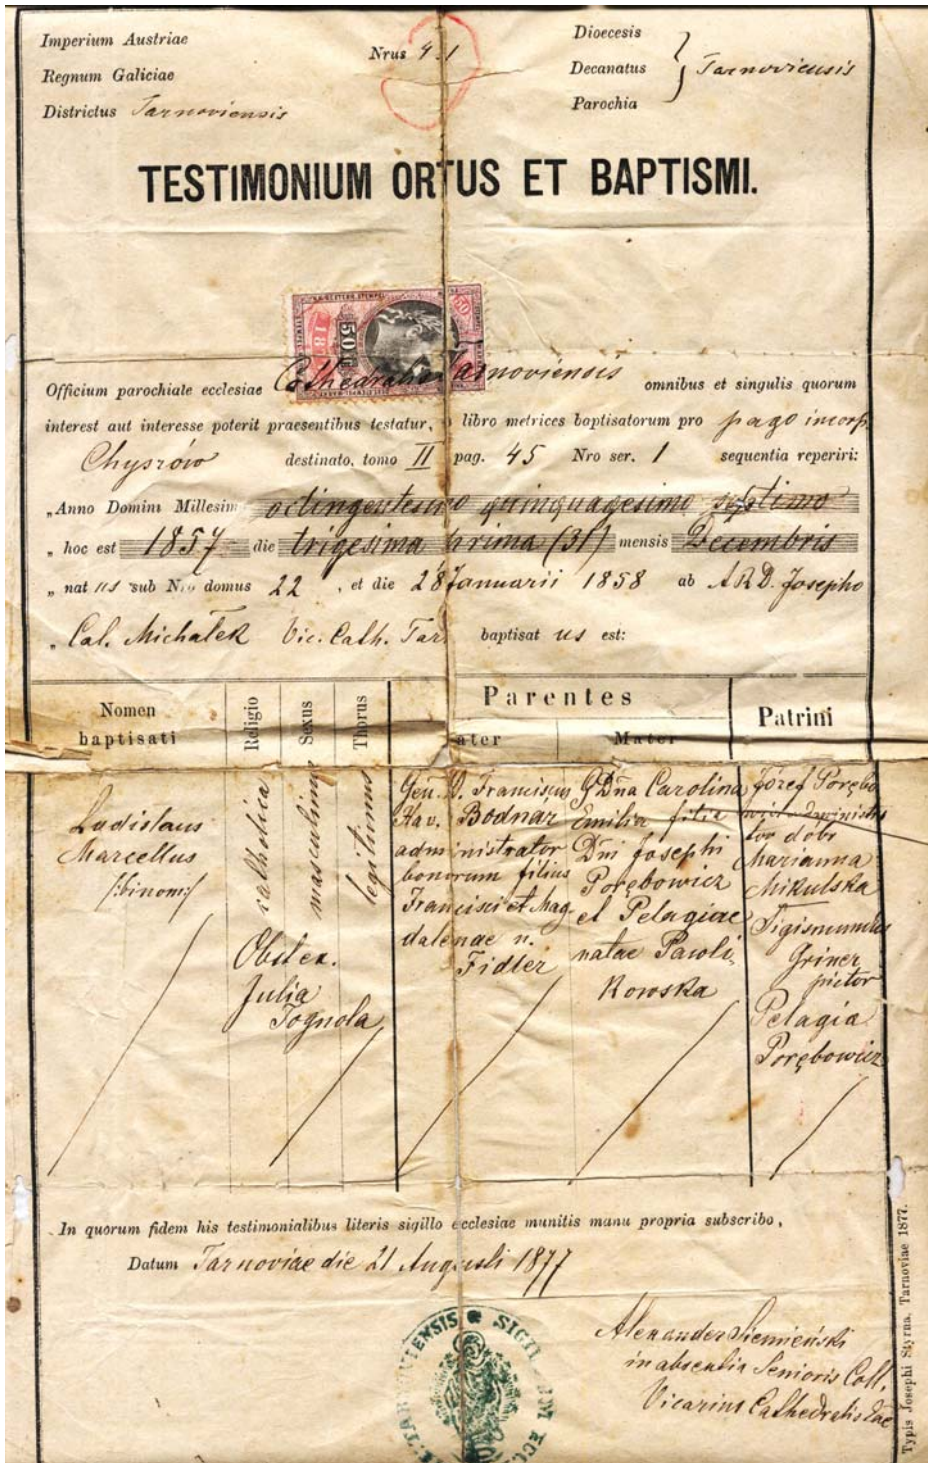 Imperium Austriae
Regnum Galiciae
Districtus Tarnoviensis
Nrus 4.1
Dioecesis
Decanatus
Parochia
Tarnoviensis
TESTIMONIUM ORTUS ET BAPTISMI.
50 18
Officium parochiale ecclesiae Cathedralis Tarnoviensis omnibus et singulis quorum
interest aut interesse poterit praesentibus testatur, libro metrices baptisatorum pro pago incorp.
Chyszów destinato, tomo II pag. 45 Nro ser. 1 sequentia reperiri:
„Anno Domini Millesim octingentesimo quinquagesimo septimo
„ hoc est 1857 die trigesima prima (31) mensis Decembris
„ nat us sub Nro domus 22, et die 28 Januarii 1858 ab A.R.D. Josepho
„ Cal. Michałek Vic. Cath. Tar. baptisat us est:
Nomen
baptisati
Religio
Sexus
Thorus
Parentes
ater
Mater
Patrini
Ladislaus
Marcellus
/:binom:/
catholica
masculinus
legitimus
Obstex.
Julia
Tognola
Gen. D. Franciscus
Hav. Bodnar
administrator
bonorum filius
Francisci et Mag
dalenae n.
Fidler
G Dña Carolina
Emilia filia
Dni Josephi
Porębowicz
et Pelagiae
natae Pawli,
kowska
Józef Porębo
wicz administra
tor dóbr
Marianna
Mikulska
Sigismundus
Griner
pictor
Pelagia
Porębowicz
In quorum fidem his testimonialibus literis sigillo ecclesiae munitis manu propria subscribo,
Datum Tarnoviae die 21 Augusti 1877
Alexander Siemieński
in absentia Senioris Coll.
Vicarius Cathedralis
SIGILLUM ECCL
TARNOVIENSIS
Typis Josephi Styrna, Tarnoviae 1877.